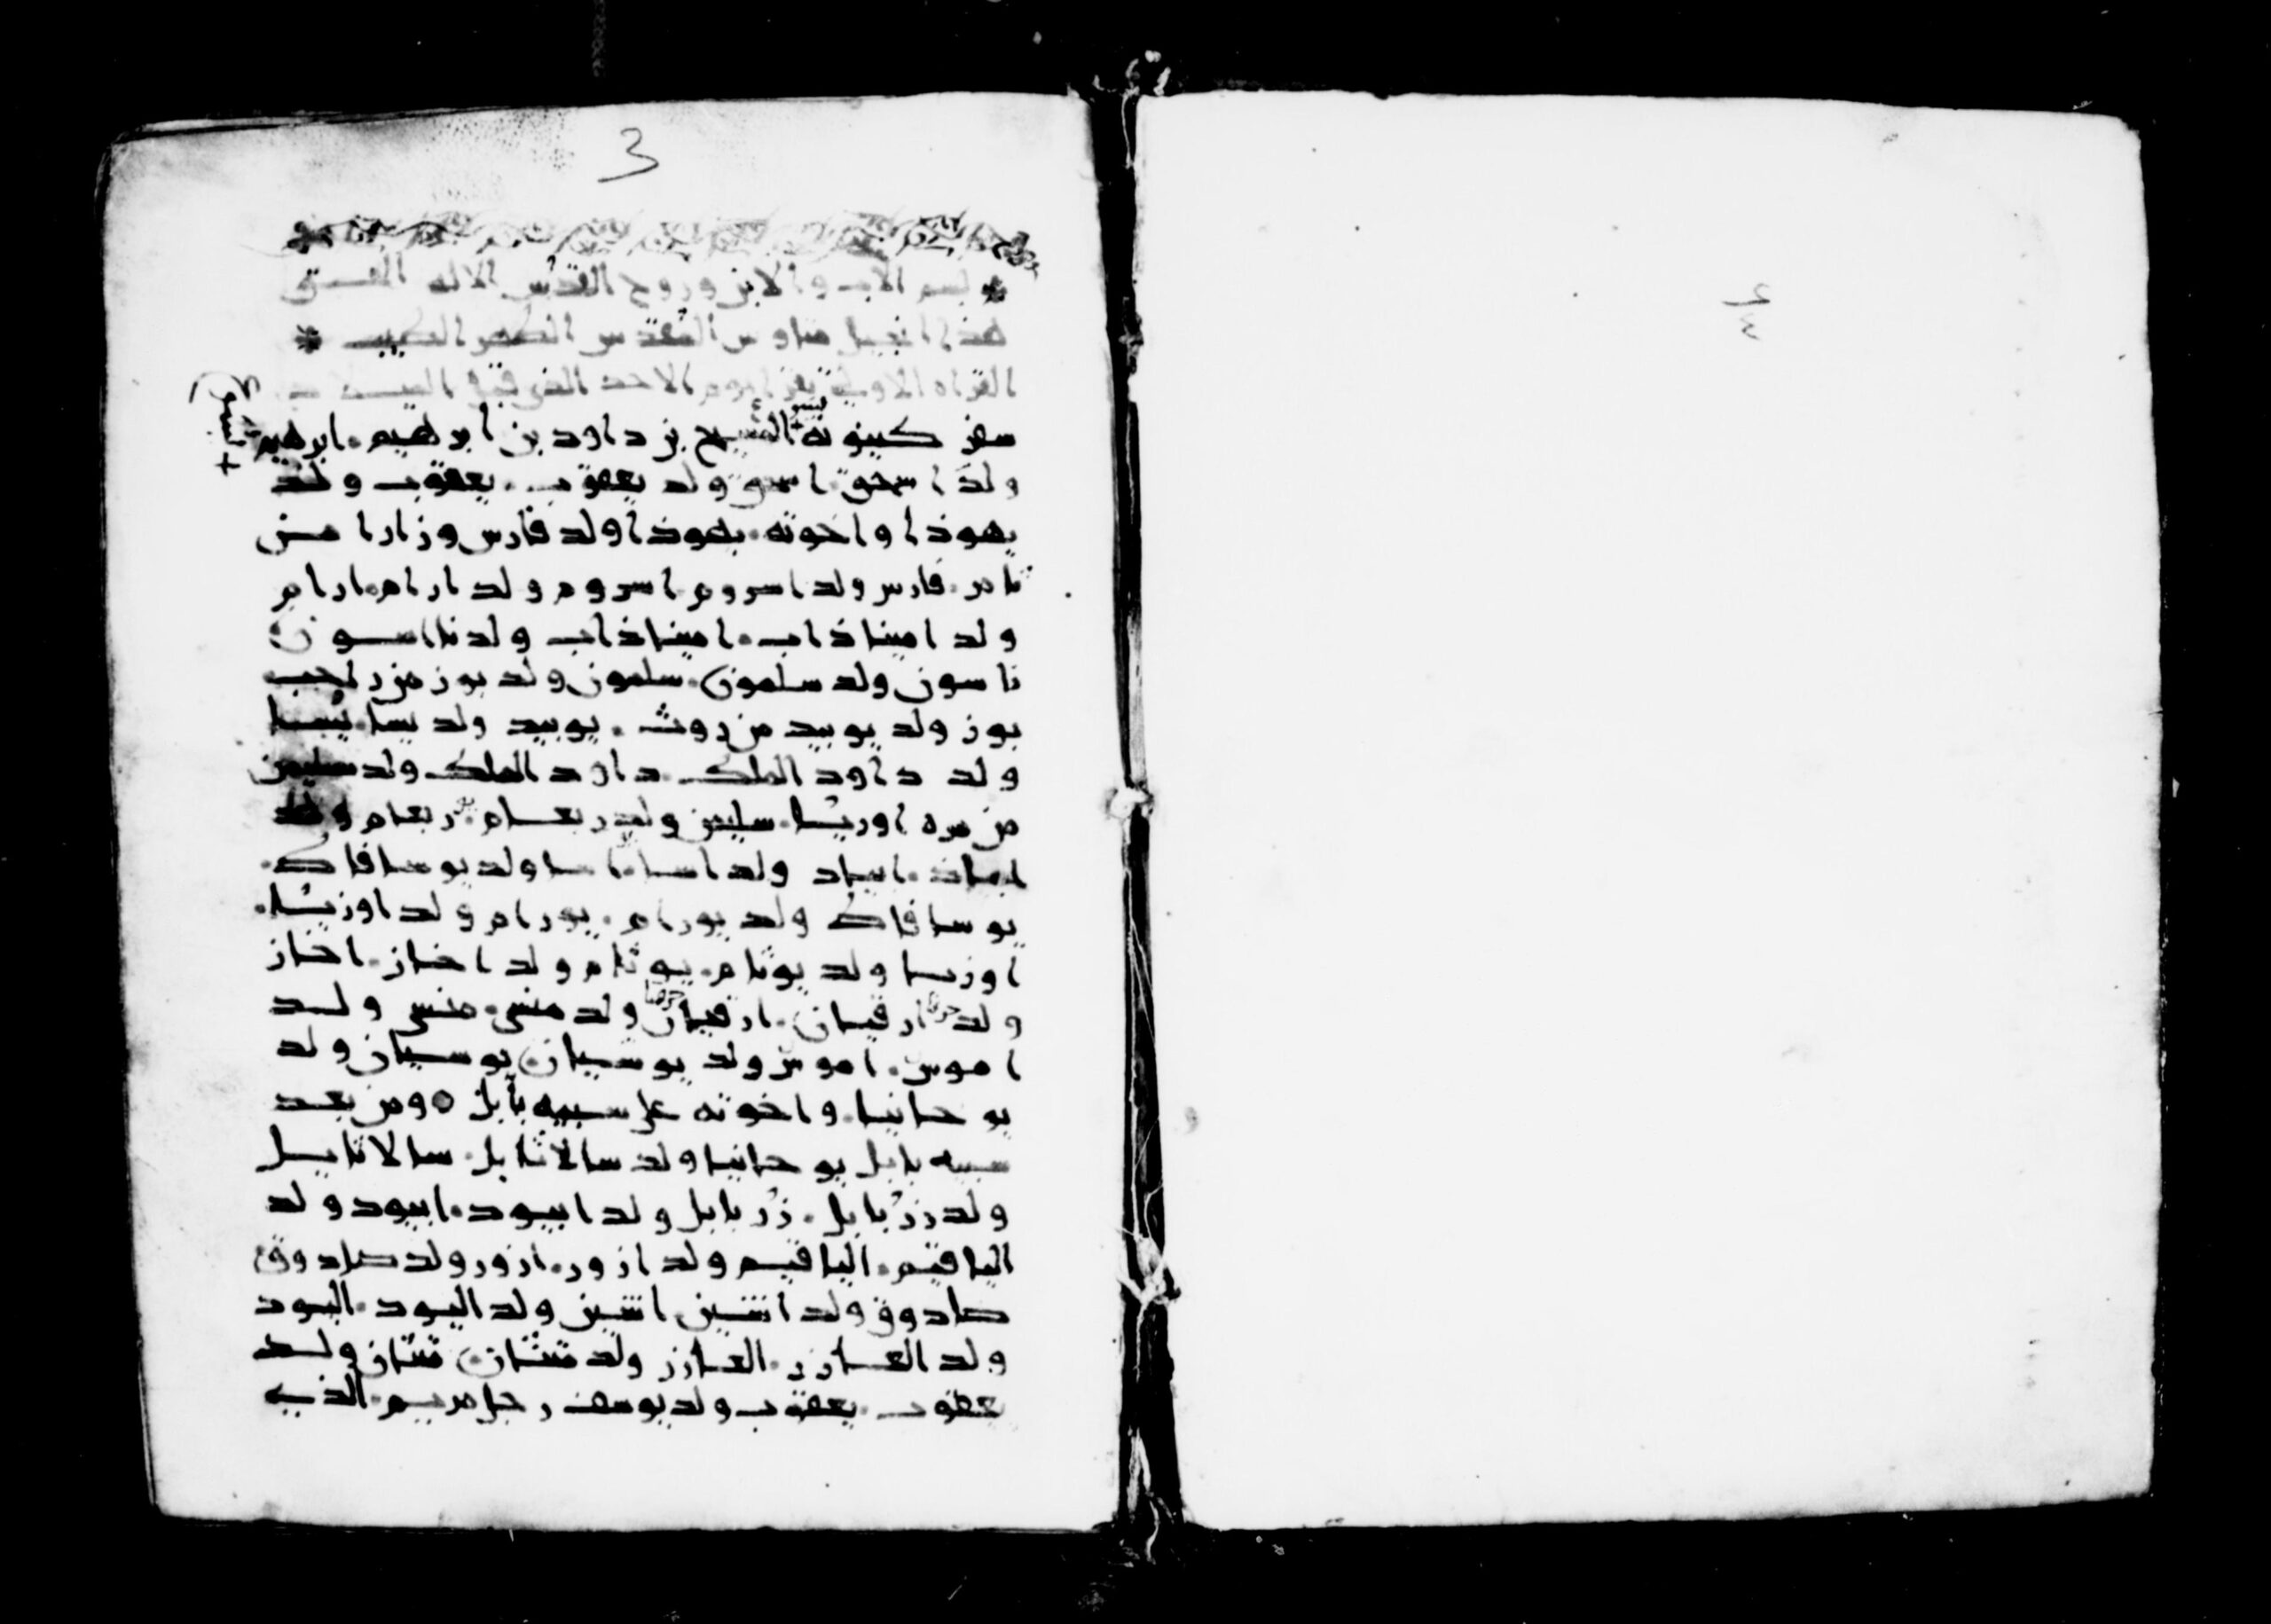 3
بسم الاب والابن وروح القدس الاله
هذا انجيل متاوس المقدس الطهر الطيب
القراه الاوله تقرا يوم الاحد الذي قبل
سفر كينونة المسيح بن داود بن ابرهيم . ابرهيم
ولد اسحق . اسحق ولد يعقوب . يعقوب ولد
يهوذا واخوته . يهوذا ولد فارس وزارا مـن
ثامر . فارس ولد اسروم . اسروم ولد ارام . ارام
ولد اميناذاب . اميناذاب ولد نااسـون
ناسون ولد سلمون . سلمون ولد بوز من راحب
بوز ولد يوبيد من روث . يوبيد ولد يسا . يسا
ولد داود الملك . داود الملك ولد سليمن
من مره اوريـا . سليمن ولد ربعـام . ربعام ولد
ابياد . ابياد ولد اسا . اسا ولد يوسافاط .
يوسافاط ولد يورام . يورام ولد اوزيـا .
اوزيـا ولد يوثام . يوثام ولد اخاز . اخاز
ولد ارقيان . ارقيان ولد منسى . منسى ولـد
اموس . اموس ولد يوسيان . يوسيان ولد
يوحانيا . واخوته على سبيه بابل ٥ ومن بعـد
سبيه بابل يوحانيا ولد سالاثايل . سالاثايـل
ولد زربابل . زربابل ولد ابيود . ابيود ولد
الياقيم . الياقيم ولد ازور . ازور ولد صادوق
صادوق ولد اشين . اشين ولد اليود . اليود
ولد العـازر . العـازر ولد متثان . متثان ولـد
يعقوب . يعقوب ولد يوسف رجل مريـم . الذي
٤
٤